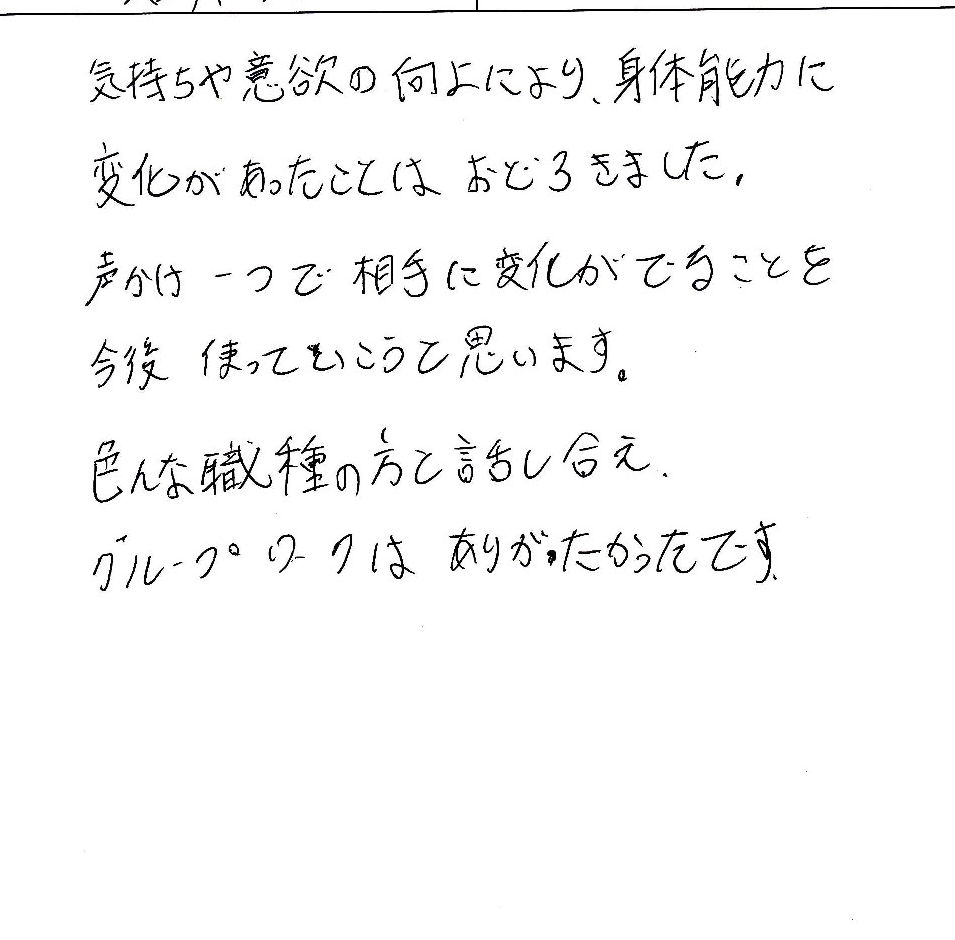 気持ちや意欲の向上により、身体能力に
変化があったことは おどろきました。
声かけ一つで相手に変化がでることを
今後 使っていこうと思います。
色んな職種の方と話し合え、
グループワークは ありがたかったです。